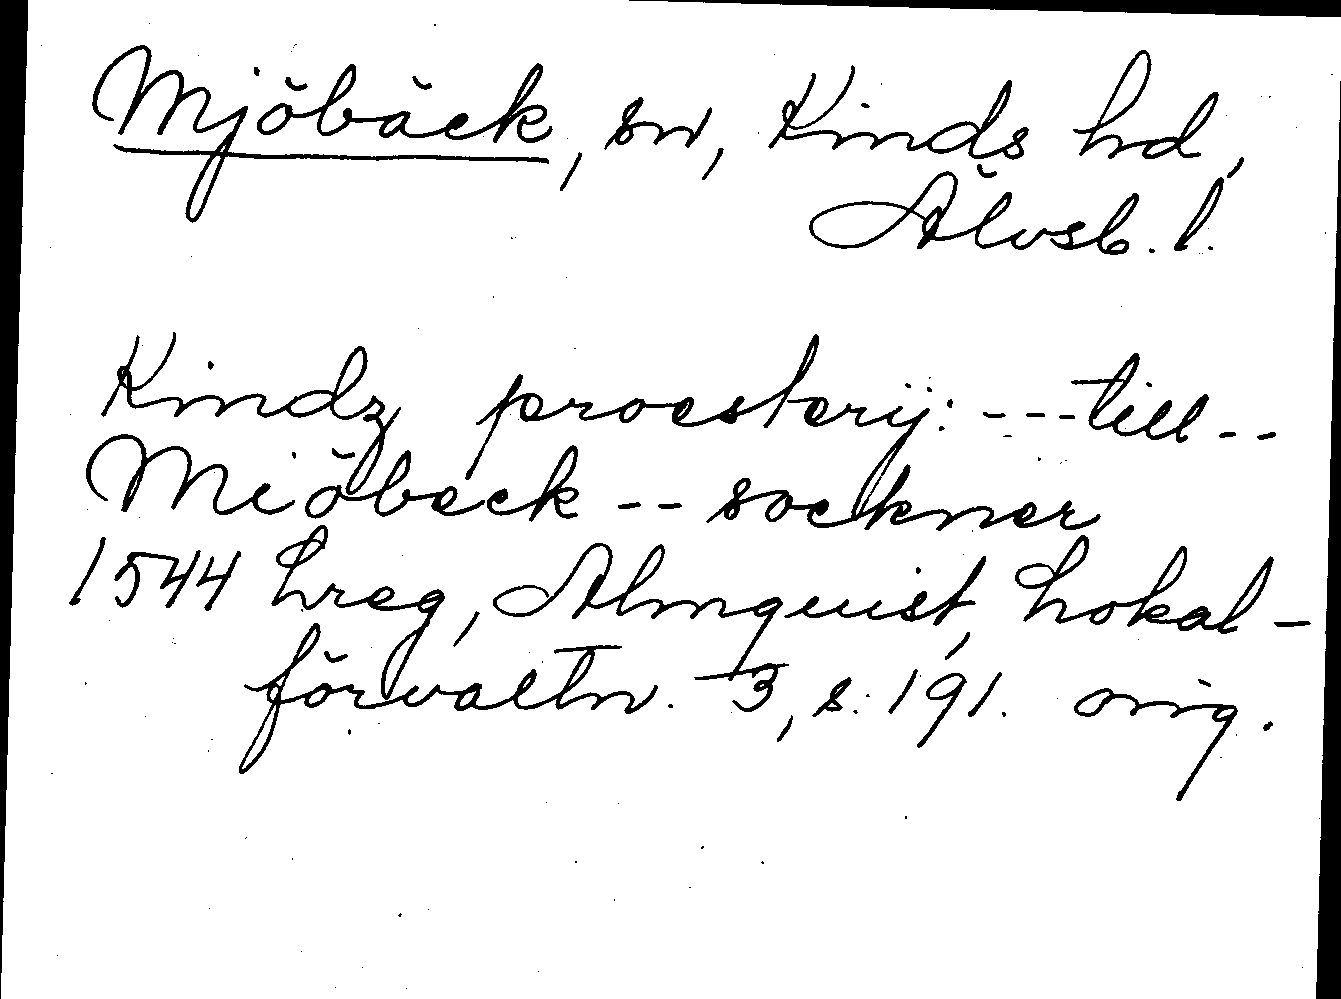 Mjöbäck, sn, Kinds hd,
Älvsb. l.
Kindz proesterij: ---till--
Miöbeck -- sockner
1544 Lreg, Almquist, Lokal-
förvaltn. 3, s. 191. orig.